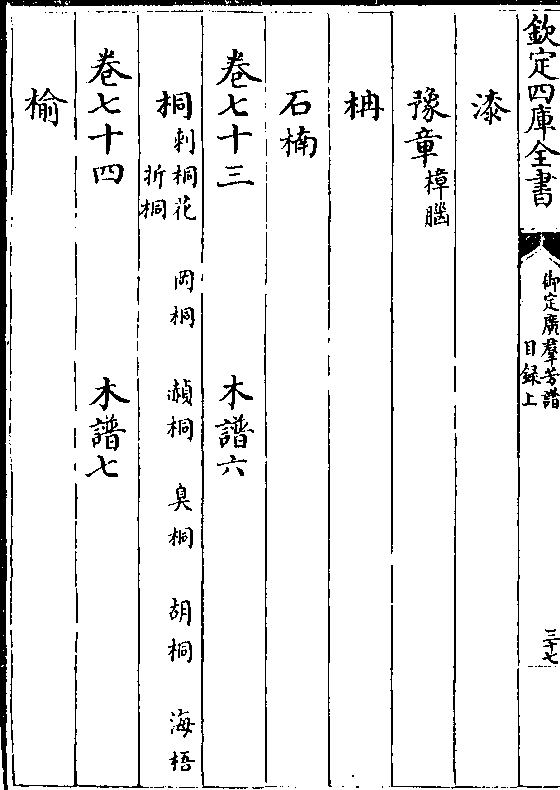 欽定四庫全書
御定廣羣芳譜
目録上
三十七
漆
豫章樟腦
柟
石楠
卷七十三 木譜六
桐刺桐花 岡桐 赬桐 臭桐 胡桐 海梧
折桐
卷七十四 木譜七
榆